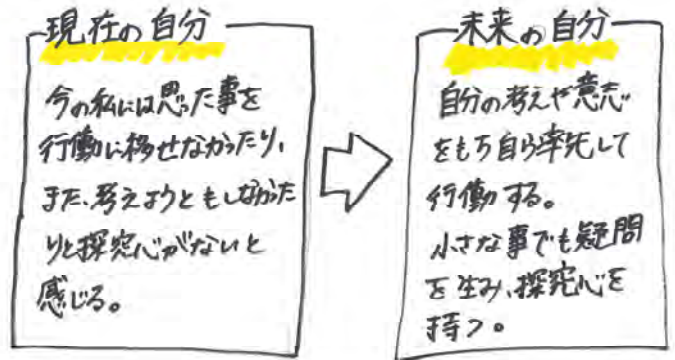 現在の自分
今の私には思った事を
行動に移せなかったり、
また、考えようともしなかった
りと探究心がないと
感じる。
未来の自分
自分の考えや意志
をもち自ら率先して
行動する。
小さな事でも疑問
を生み、探究心を
持つ。